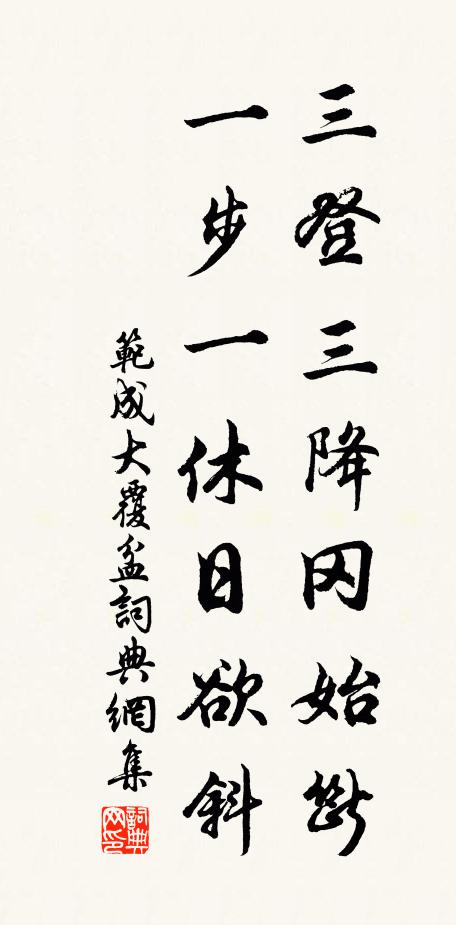 三登三降冈始斷
一步一休日欲斜
範成大覆盆詞典網集
詞典
网印